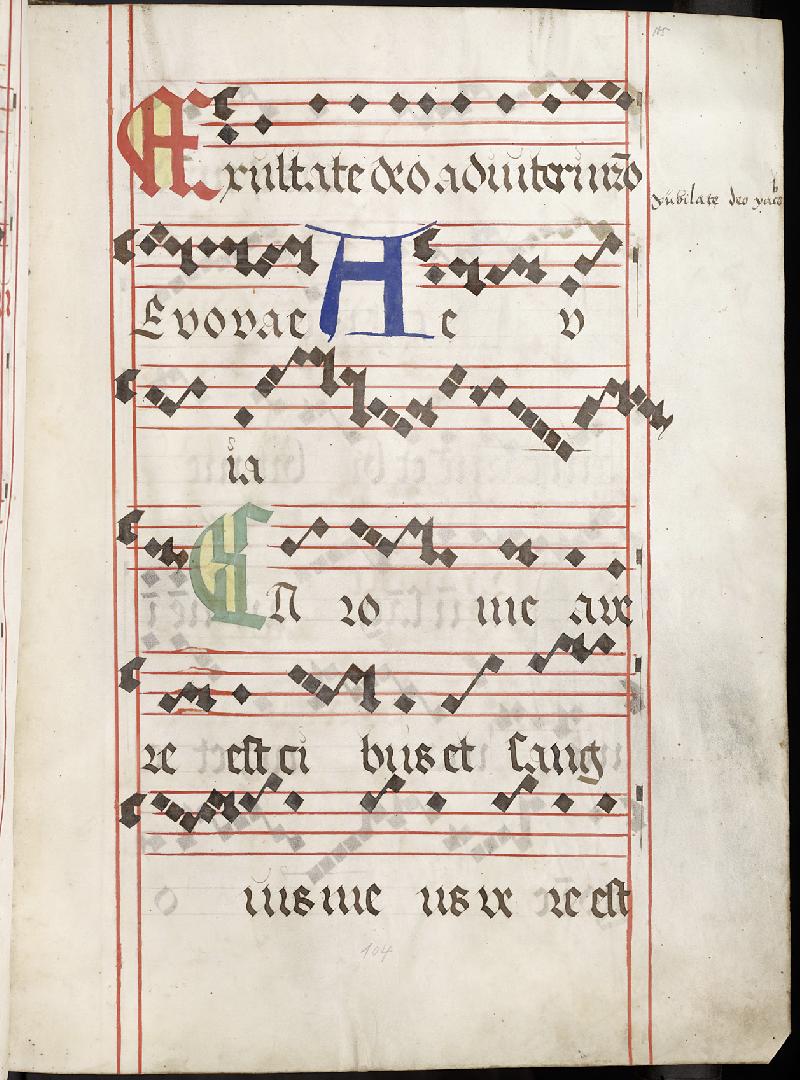 Exultate deo adiutori nr̄o
Jubilate deo yaco
Evovae Ae v
ia
Caro me a ve
re est ci bus et sang
uis me us ve re est
104